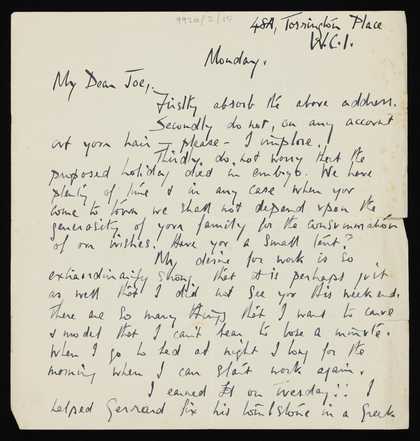 992a/2/15
48A, Torrington Place
W.C.1.
Monday.
My Dear Joe,
Firstly absorb the above address.
Secondly do not, on any account
cut your hair - please - I implore.
Thirdly do not worry that the
proposed holiday died in embryo. We have
plenty of time & in any case when you
come to town we shall not depend upon the
generosity of your family for the consummation
of our wishes. Have you a small tent?
My desire for work is so
extraordinarily strong that it is perhaps just
as well that I did not see you this weekend.
There are so many things that I want to carve
& model that I can't bear to lose a minute.
When I go to bed at night I long for the
morning when I can start work again.
I earned £1 on Tuesday!! I
helped Gerrard fix his tombstone in a Greek